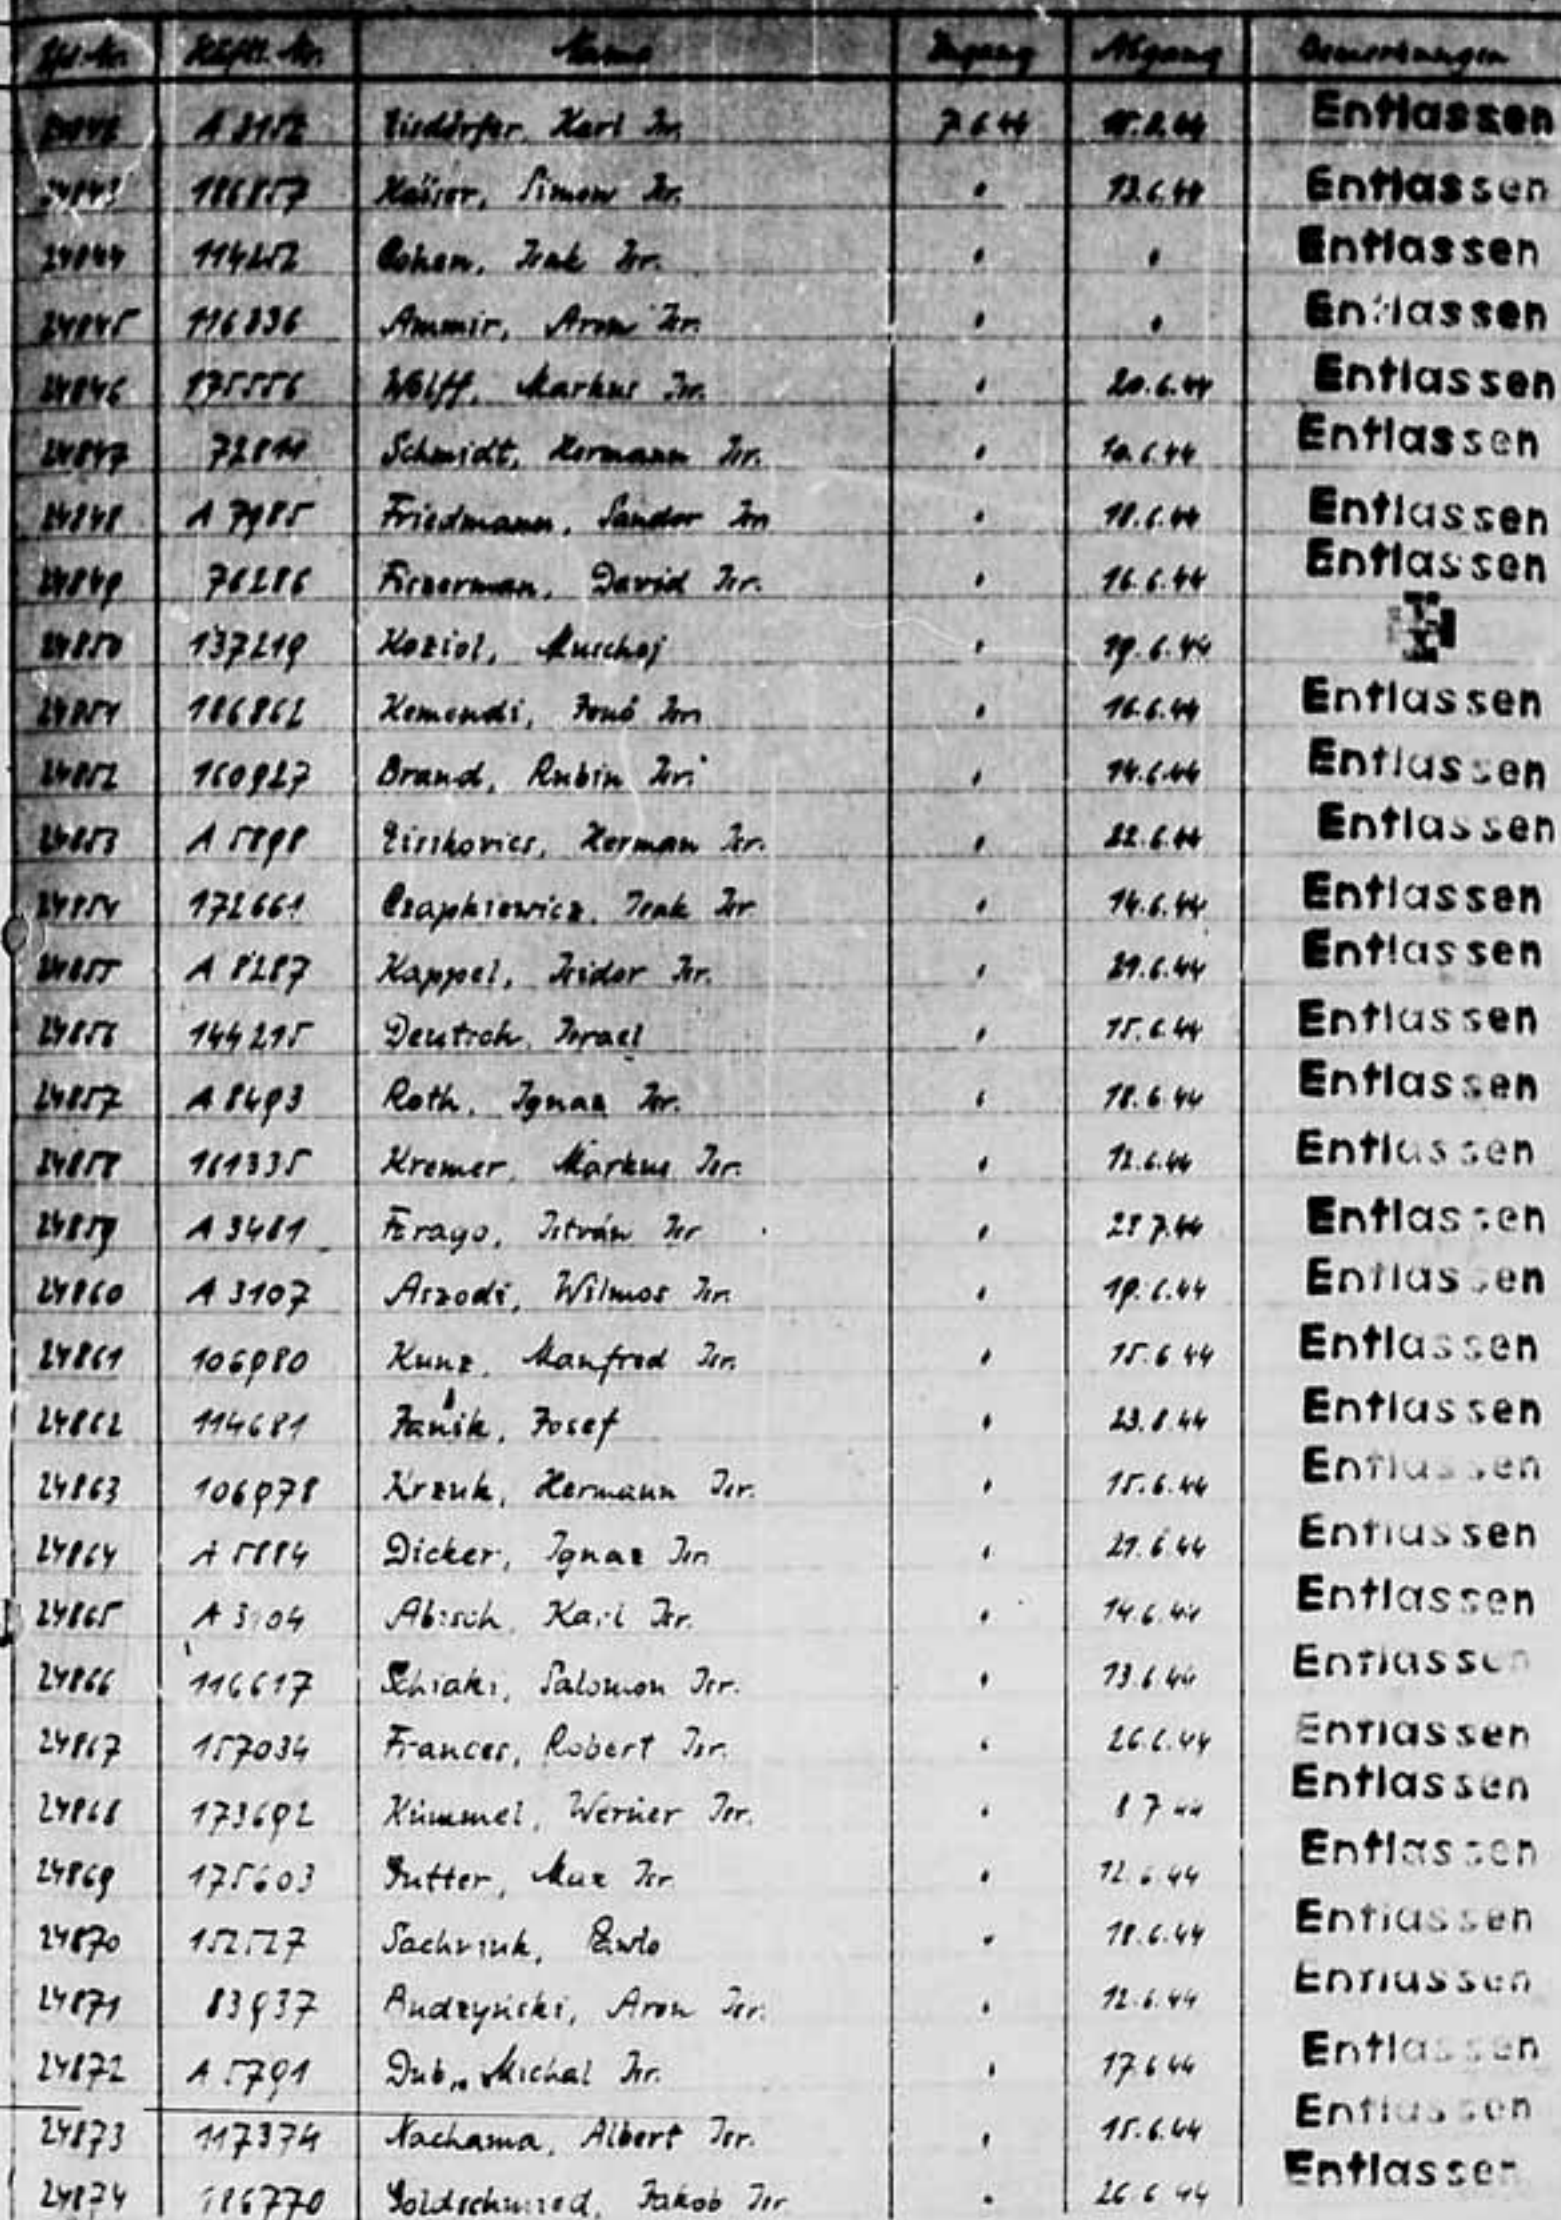 Lfd. Nr. Häftl. Nr. Name Zugang Abgang Bemerkungen
A 8152 Karl Isr. 7.6.44 Entlassen
24843 186857 Simon Isr. " 13.6.44 Entlassen
24844 114252 Cohen, Isak Isr. " " Entlassen
24845 116336 Ammir, Aron Isr. " " Entlassen
24846 175556 Wolff, Markus Isr. " 20.6.44 Entlassen
24847 72811 Schmidt, Hermann Isr. " 10.6.44 Entlassen
24848 A 7985 Friedmann, Sandor Isr. " 18.6.44 Entlassen
24849 76286 David Isr. " 16.6.44 Entlassen
24850 137219 Koziol, " 19.6.44
24851 186862 Kemendi, Jenö Isr. " 16.6.44 Entlassen
24852 160927 Brand, Rubin Isr. " 14.6.44 Entlassen
24853 A 5898 Herman Isr. " 22.6.44 Entlassen
24854 172661 Czapkiewicz, Isak Isr. " 14.6.44 Entlassen
24855 A 8287 Kappel, Isidor Isr. " 21.6.44 Entlassen
24856 144215 Deutsch, Israel " 15.6.44 Entlassen
24857 A 8493 Roth, Ignaz Isr. " 18.6.44 Entlassen
24858 161335 Kremer, Markus Isr. " 12.6.44 Entlassen
24859 A 3481 István Isr. " 28.7.44 Entlassen
24860 A 3107 Aszodi, Wilmos Isr. " 19.6.44 Entlassen
24861 106980 Kunz, Manfred Isr. " 15.6.44 Entlassen
24862 114681 Josef " 23.8.44 Entlassen
24863 106978 Krzuk, Hermann Isr. " 15.6.44 Entlassen
24864 A 5884 Dicker, Ignaz Isr. " 21.6.44 Entlassen
24865 A 3104 Abisch, Karl Isr. " 14.6.44 Entlassen
24866 116617 Schiaki, Salomon Isr. " 13.6.44 Entlassen
24867 157034 Frances, Robert Isr. " 26.6.44 Entlassen
24868 173692 Kümmel, Werner Isr. " 8.7.44 Entlassen
24869 175603 Gutter, Max Isr. " 12.6.44 Entlassen
24870 152527 " 18.6.44 Entlassen
24871 83937 Aron Isr. " 12.6.44 Entlassen
24872 A 5791 Dub, Michal Isr. " 17.6.44 Entlassen
24873 117374 Nachama, Albert Isr. " 15.6.44 Entlassen
24874 186770 Goldschmied, Jakob Isr. " 26.6.44 Entlassen